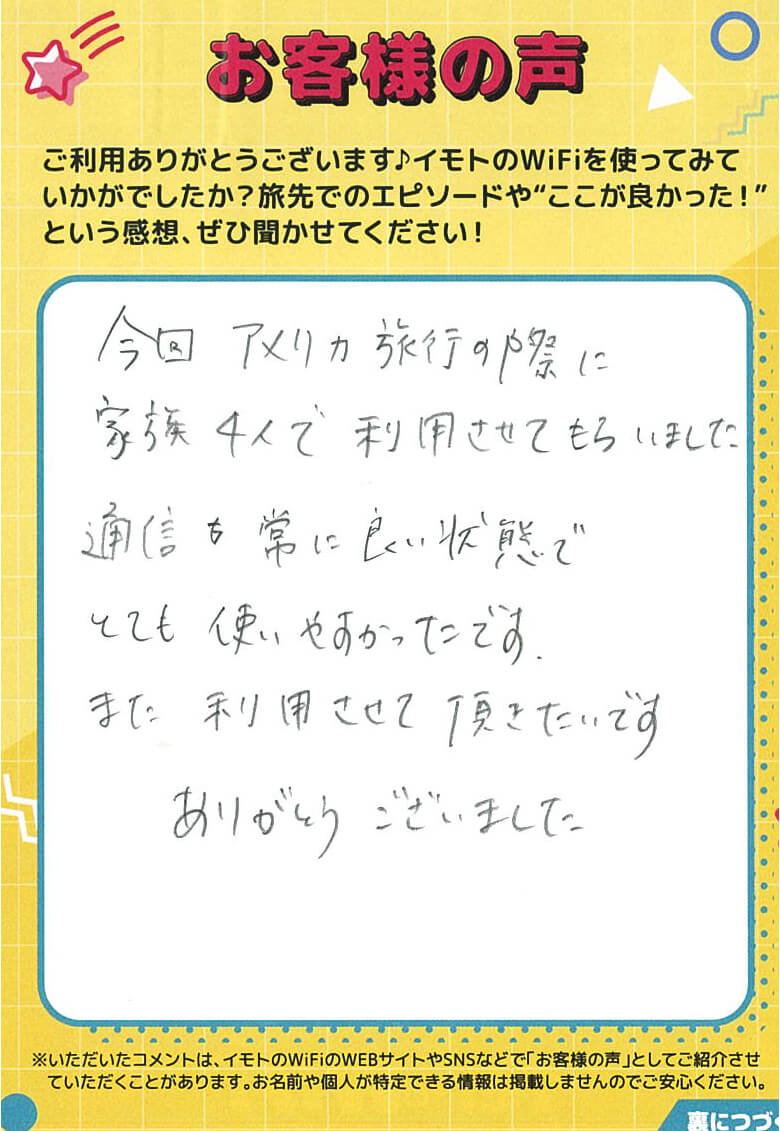 お客様の声
ご利用ありがとうございます♪イモトのWiFiを使ってみて
いかがでしたか？旅先でのエピソードや“ここが良かった！”
という感想、ぜひ聞かせてください！
今回 アメリカ 旅行の際に
家族 4人で 利用させてもらいました
通信も 常に 良い状態で
とても 使いやすかったです.
また 利用させて 頂きたいです
ありがとう ございました
※いただいたコメントは、イモトのWiFiのWEBサイトやSNSなどで「お客様の声」としてご紹介させ
ていただくことがあります。お名前や個人が特定できる情報は掲載しませんのでご安心ください。
裏につづ